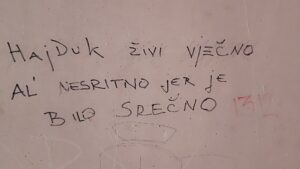 HAjDUK ŽIVI VJEČNO
AL' NESRITNO jER jE
BILO SREČNO 1312